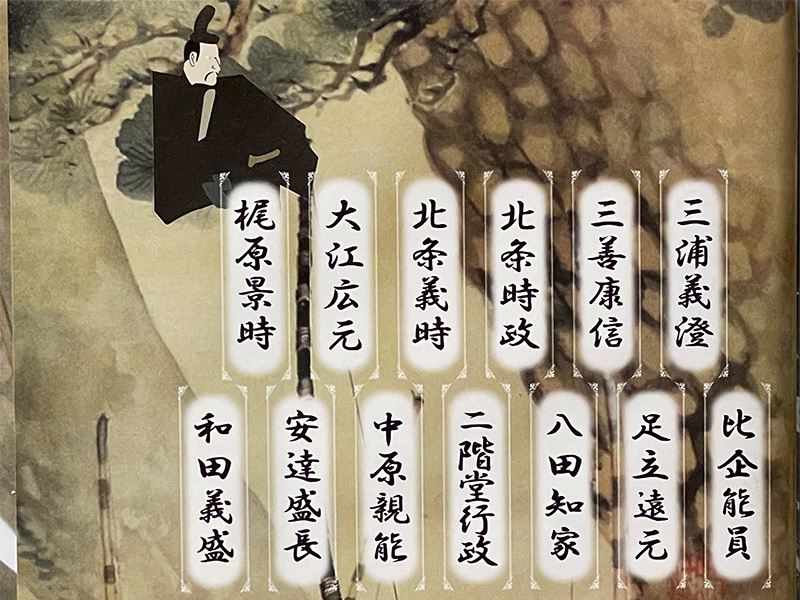 三浦義澄
三善康信
北条時政
北条義時
大江広元
梶原景時
比企能員
足立遠元
八田知家
二階堂行政
中原親能
安達盛長
和田義盛